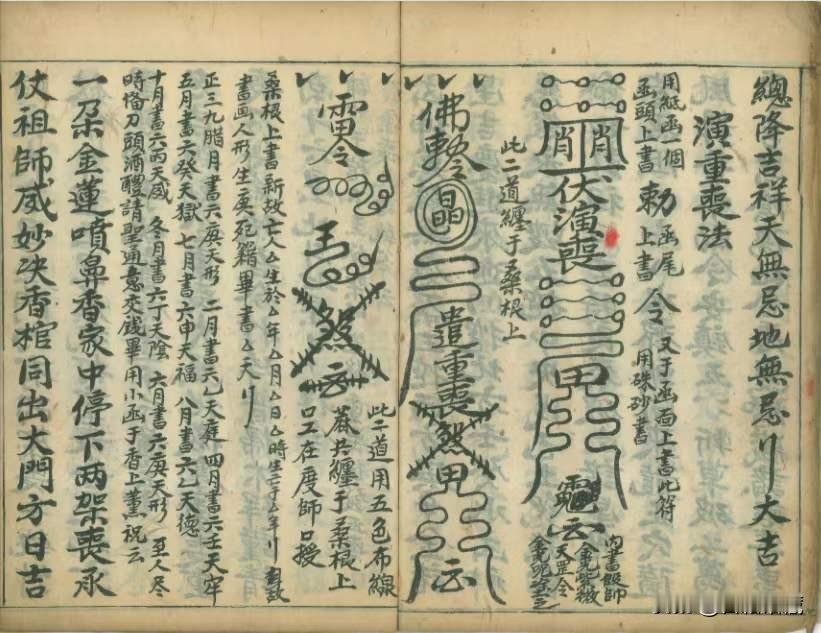 總降吉祥天無忌地無忌〢大吉
演重喪法
用紙函一個
函頭上書 勅 函尾
上書 令 又于函面上書此符
用硃砂書
肖 肖
伏演喪
甲
此二道纏于桑根上
佛勅令
晶
遣重喪煞甲
云
此二道用五色布線
蔴共纏于桑根上
口工在度師口授
雷令
王
煞云
桑根上書新故亡人厶生於厶年厶月厶日厶時生亡于厶年〢
書画人形生庚犯籍畢書厶天〢
正三九臘月書六庚天形 二月書六乙天庭 四月書六壬天牢
五月書六癸天獄 七月書六申天福 八月書六乙天德
十月書六丙天威 冬月書六丁天陰 六月書六庚天形 至人尽
時俻刀頭酒醴請聖通意交錢畢用小函于香上薰祝云
一朶金蓮噴鼻香家中停下两架喪承
仗祖師威妙决香棺同出大門方日吉